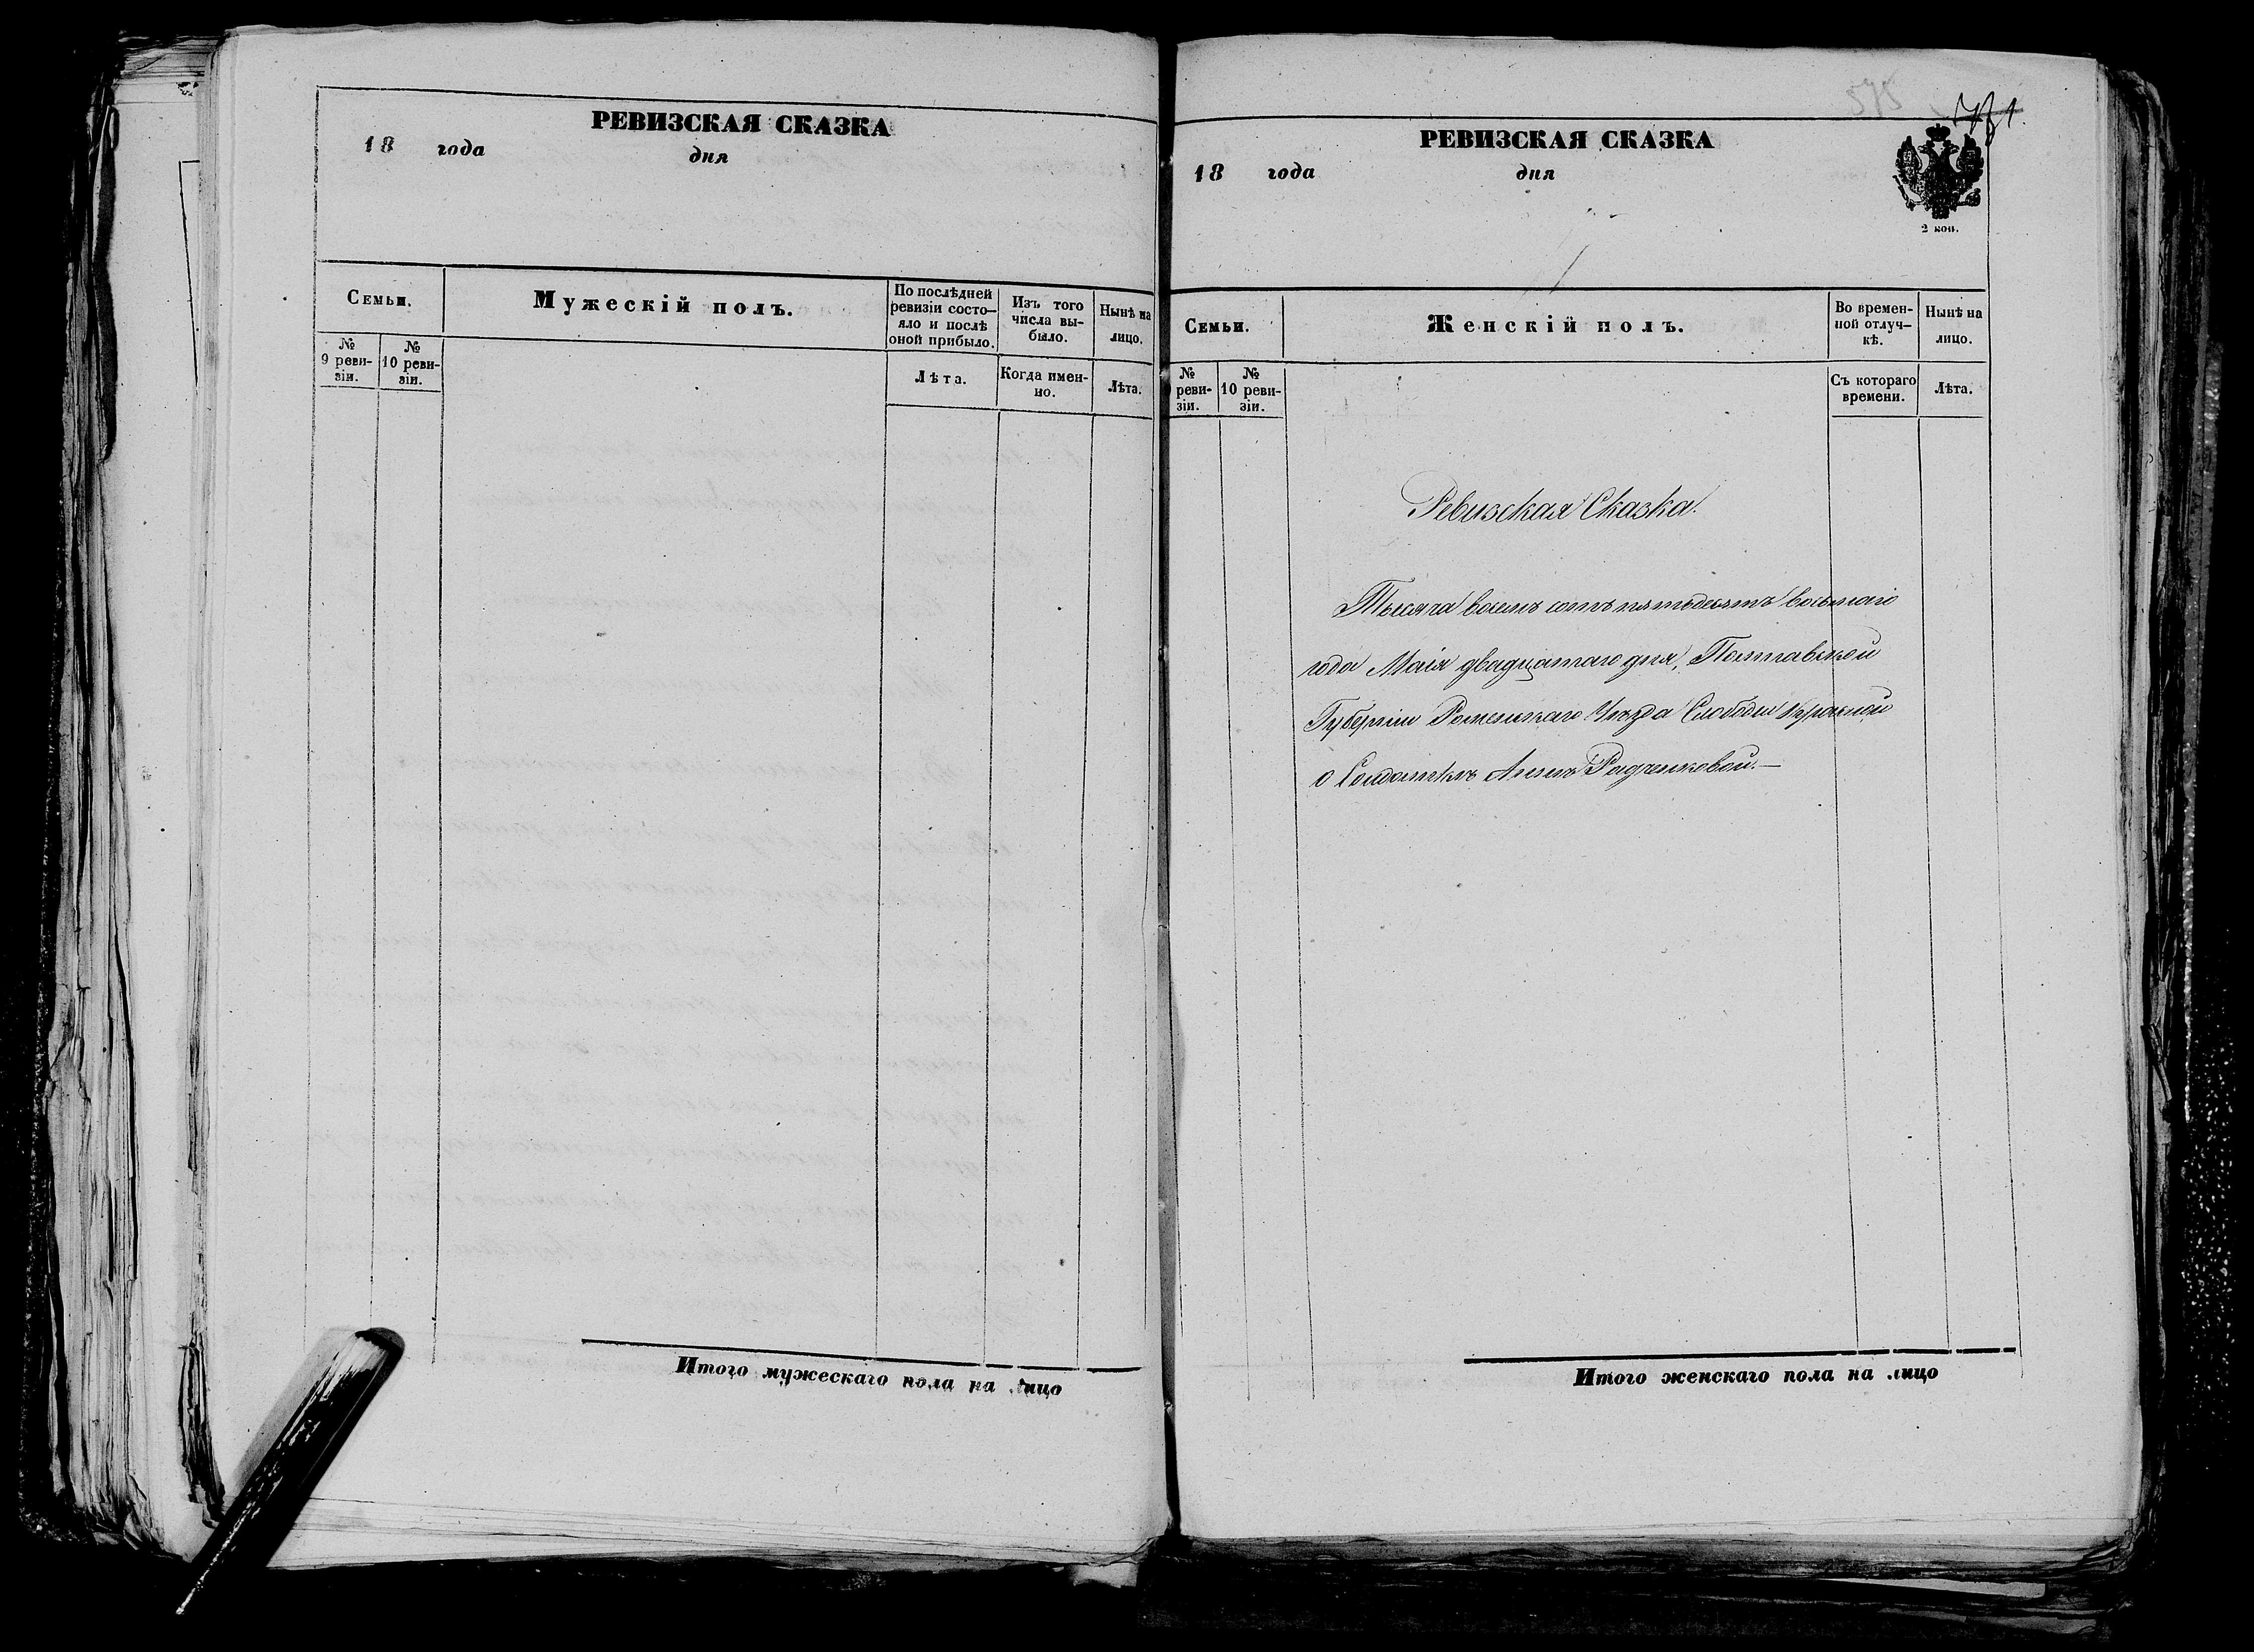 РЕВИЗСКАЯ СКАЗКА
18 года дня
Семьи.
Мужескій полъ.
По послѣдней ревизіи состо-яло и послѣ оной прибыло.
Изъ того числа вы-было.
Нынѣ на лицо.
№ 9 реви-зіи.
№ 10 реви-зіи.
Лѣта.
Когда имен-но.
Лѣта.
Итого мужескаго пола на лицо
575
РЕВИЗСКАЯ СКАЗКА
18 года дня
2 коп.
Семьи.
Женскій полъ.
Во времен-ной отлуч-кѣ.
Нынѣ на лицо.
№ реви-зіи.
№ 10 реви-зіи.
Съ котораго времени.
Лѣта.
Ревизская Сказка.
Тысяча восемъ сотъ пятьдесятъ восьмаго
года Маія двадцатаго дня, Полтавской
Губерніи Роменскаго Уѣзда Слободы
о Солдаткѣ Аннѣ Радченковой.—
Итого женскаго пола на лицо